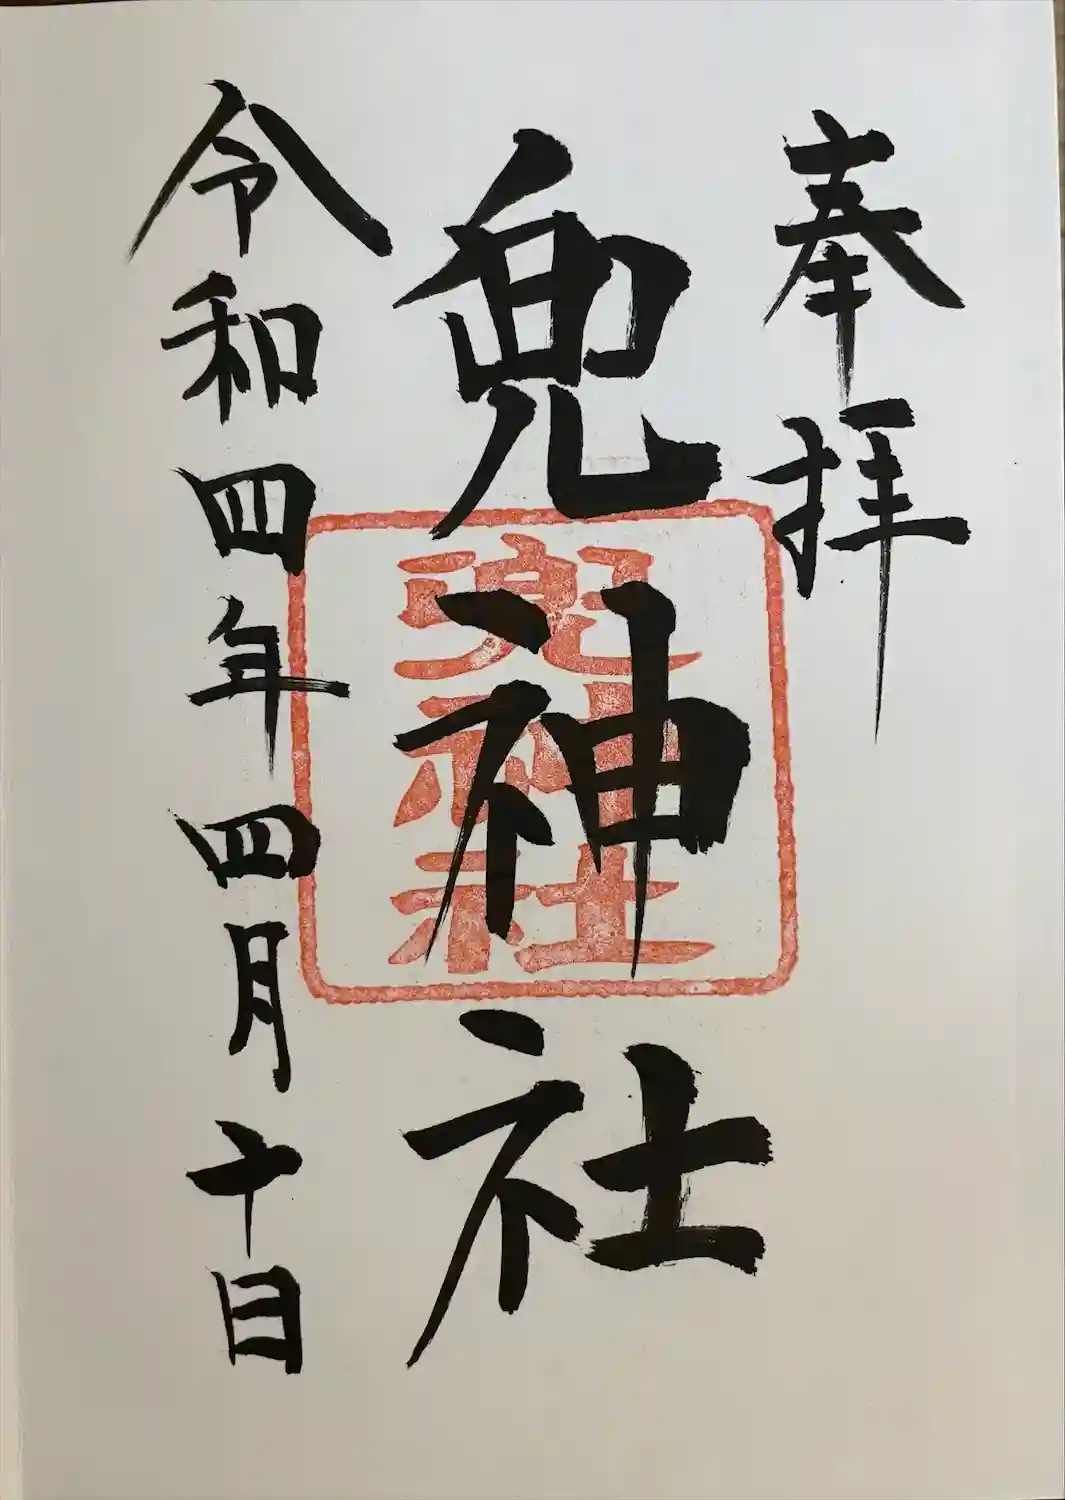 奉拝
兜神社
兜神社
令和四年四月十日